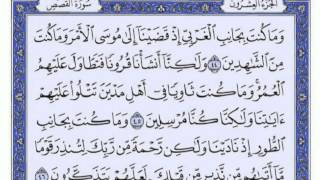 الجزء العشرون سورة القصص
وَمَا كُنتَ بِجَانِبِ الْغَرْبِيِّ إِذْ قَضَيْنَا إِلَىٰ مُوسَى الْأَمْرَ وَمَا كُنتَ
مِنَ الشَّاهِدِينَ ٤٤ وَلَٰكِنَّا أَنشَأْنَا قُرُونًا فَتَطَاوَلَ عَلَيْهِمُ
الْعُمُرُ وَمَا كُنتَ ثَاوِيًا فِي أَهْلِ مَدْيَنَ تَتْلُوا عَلَيْهِمْ
ءَايَاتِنَا وَلَٰكِنَّا كُنَّا مُرْسِلِينَ ٤٥ وَمَا كُنتَ بِجَانِبِ
الطُّورِ إِذْ نَادَيْنَا وَلَٰكِن رَّحْمَةً مِّن رَّبِّكَ لِتُنذِرَ قَوْمًا
مَّا أَتَاهُم مِّن نَّذِيرٍ مِّن قَبْلِكَ لَعَلَّهُمْ يَتَذَكَّرُونَ ٤٦